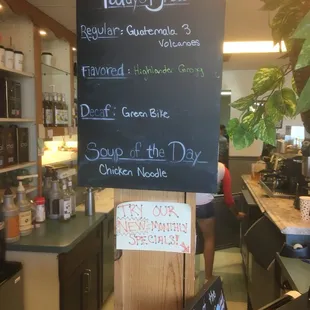 Today's
Regular: Guatemala 3
Volcanoes
Flavored: Highlander Grogg
Decaf: Green Bike
Soup of the Day
Chicken Noodle
TRY OUR
NEW MONTHLY
SPECIALS!